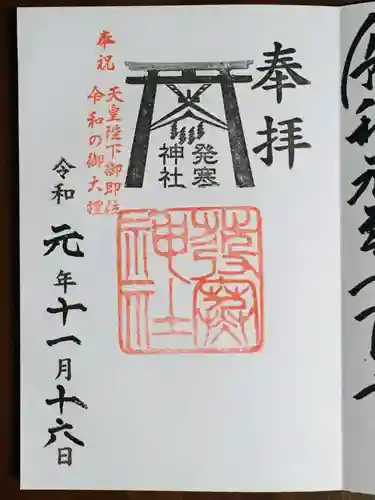 奉拝
発寒
神社
奉祝
天皇陛下御即位
令和の御大禮
發寒
神社
令和元年十一月十六日